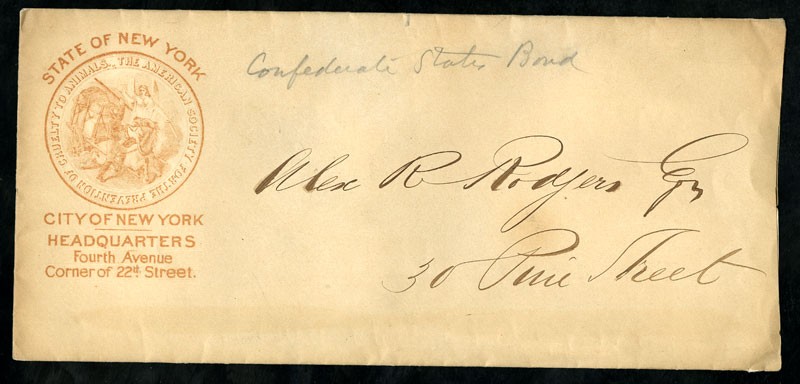 STATE OF NEW YORK
THE AMERICAN SOCIETY FOR THE PREVENTION OF CRUELTY TO ANIMALS.
CITY OF NEW YORK
HEADQUARTERS
Fourth Avenue
Corner of 22d. Street.
Confederate States Bond
Alex R Rodgers Esq
30 Pine Street